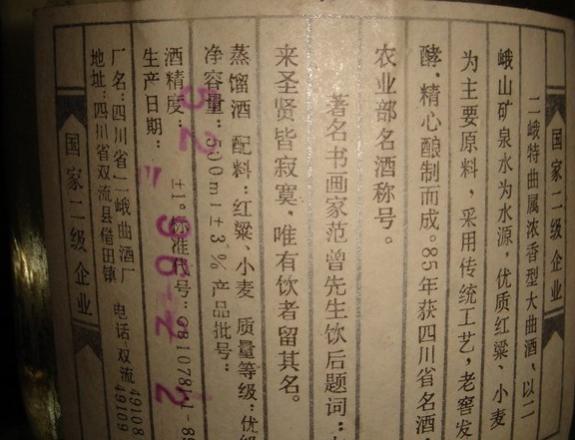 国家二级企业
二峨特曲属浓香型大曲酒、以二
峨山矿泉水为水源，优质红粱、小麦
为主要原料，采用传统工艺，老窖发
酵，精心酿制而成。85年获四川省名酒
农业部名酒称号。
著名书画家范曾先生饮后题词：
来圣贤皆寂寞，唯有饮者留其名。
蒸馏酒 配料：红粱、小麦 质量等级：优
净容量：500ml±3% 产品批号：
酒精度： ±1° 标准代号：GB10781·1-89
52
生产日期：
厂名：四川省二峨曲酒厂 电话：双流 49108
49109
地址：四川省双流县借田镇
国家二级企业